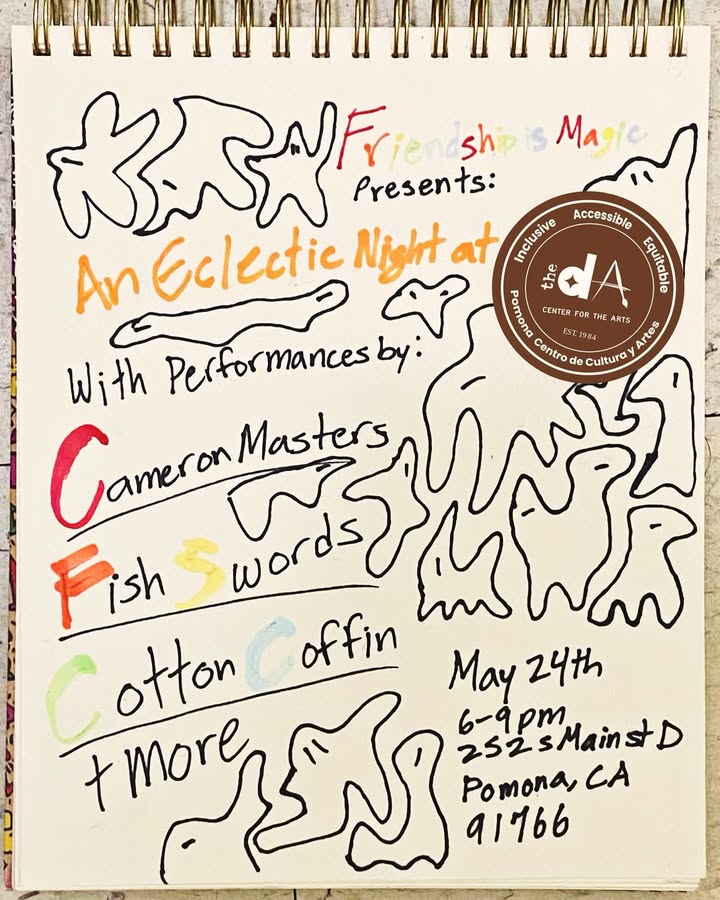 Friendship is Magic
Presents:
An Eclectic Night at
Inclusive Accessible Equitable
the dA
CENTER FOR THE ARTS
EST. 1984
Pomona Centro de Cultura y Artes
With Performances by:
Cameron Masters
Fish Swords
Cotton Coffin
+ More
May 24th
6-9pm
252 s Main st D
Pomona, CA
91766